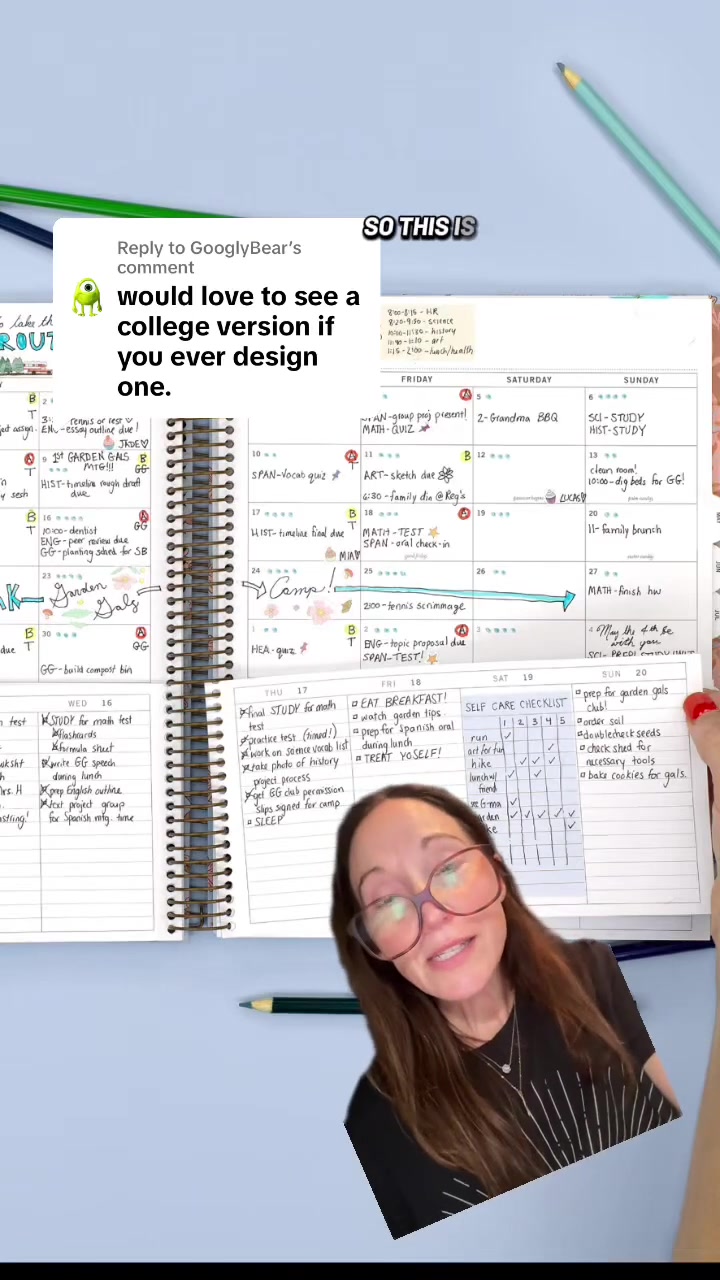 SO THIS IS
Reply to GooglyBear's
comment
would love to see a
college version if
you ever design
one.
8:00-8:15 - HR
8:20-9:50 - science
- history
- art
- lunch/health
FRIDAY
SATURDAY
SUNDAY
B
T
2
tennis or rest
ENG-essay outline due!
JADE
A
T
9
1ST GARDEN GALS
MTG!!!
B
GG
HIST-timeline rough draft
due
B
T
16
10:00-dentist
ENG-peer review due
GG-planting sched for SB
A
GG
23
Garden
Gals
B
T
due
30
A
GG
GG-build compost bin
A
-group proj present!
MATH-QUIZ
5
2-Grandma BBQ
6
SCI-STUDY
HIST-STUDY
10
A
T
SPAN-vocab quiz
11
B
ART-sketch due
6:30-family din @Reg's
12
LUCAS
13
clean room!
10:00-dig beds for GG!
17
B
T
HIST-timeline final due
MIA
18
A
MATH-TEST
SPAN-oral check-in
good friday
19
20
11-family brunch
easter sunday
24
Camp!
25
2:00-tennis scrimmage
26
27
MATH-finish hw
1
B
T
HEA-quiz
2
A
GG
ENG-topic proposal due
SPAN-TEST!
3
4
May the 4th be
with you
WED 16
STUDY for math test
flashcards
formula sheet
write GG speech
during lunch
prep English outline
text project group
for Spanish mtg. time
THU 17
final STUDY for math
test
practice test (timed!)
work on science vocab list
take photo of history
project process
get GG club permission
slips signed for camp
SLEEP
FRI 18
EAT BREAKFAST!
watch garden tips
prep for Spanish oral
during lunch
TREAT YOSELF!
SAT 19
SELF CARE CHECKLIST
1 2 3 4 5
run
art for fun
hike
lunch w/
friend
SUN 20
prep for garden gals
club!
order soil
doublecheck seeds
check shed for
necessary tools
bake cookies for gals.